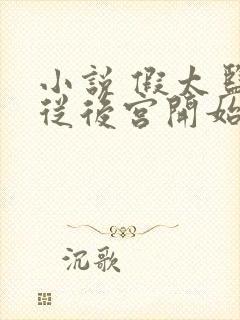 小説 假太監
從後宮開始
沉歌